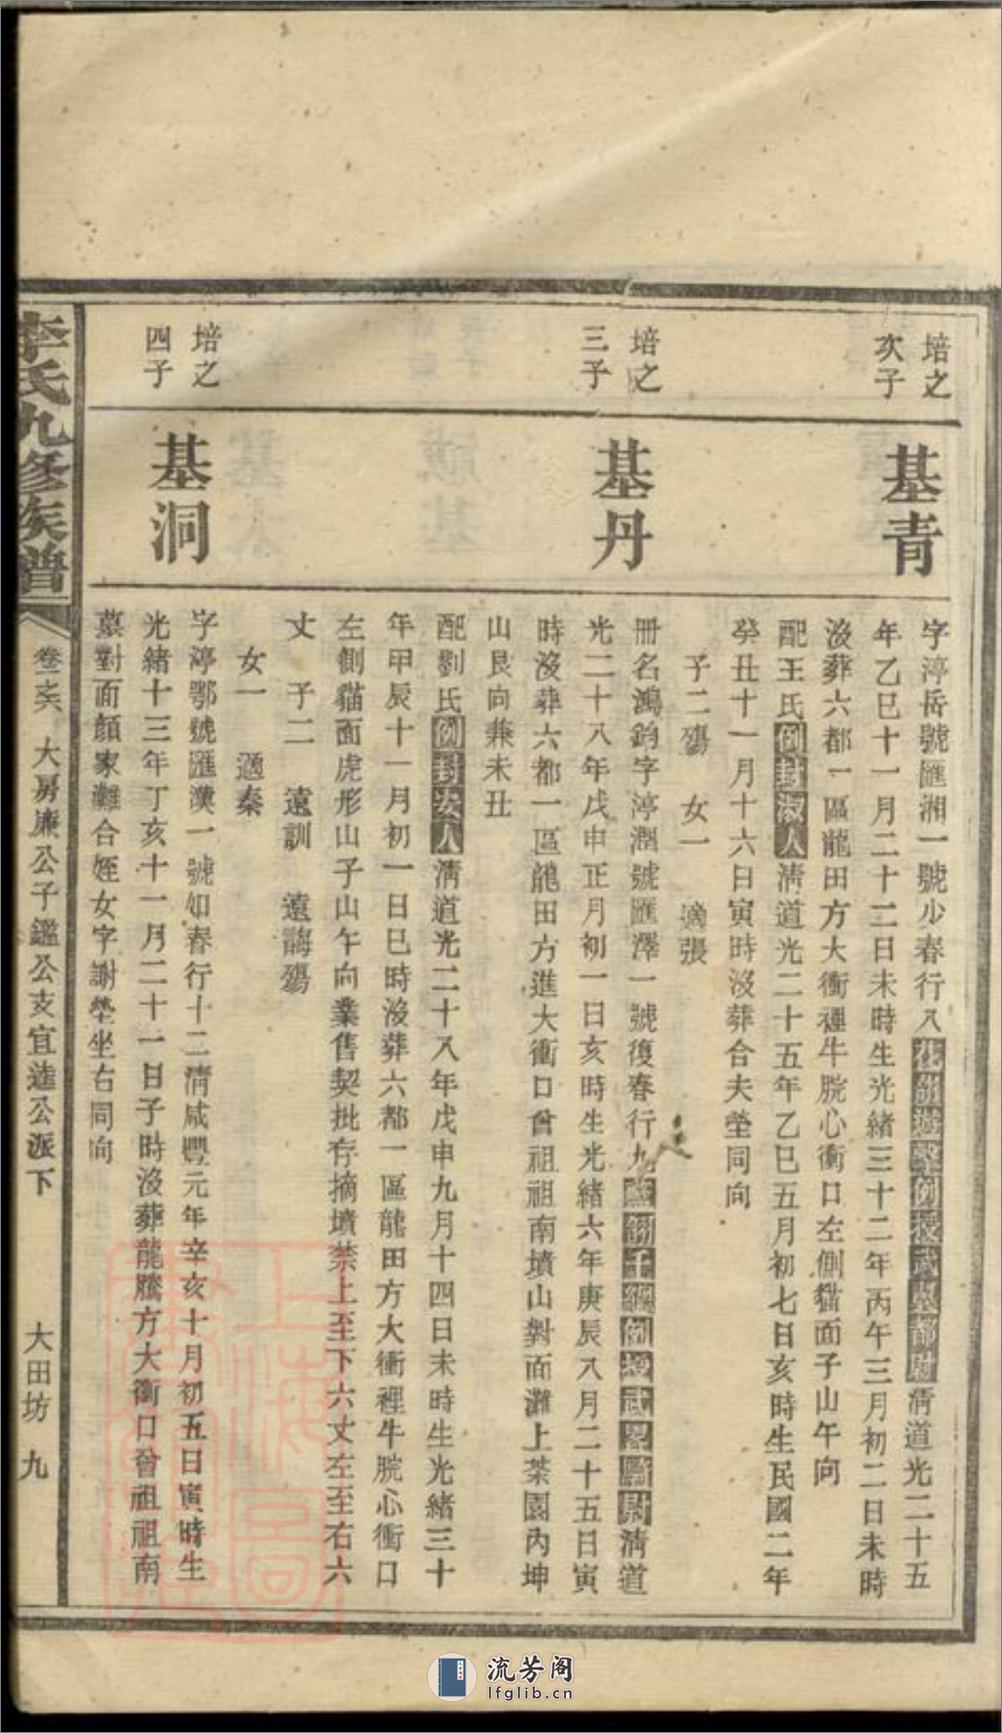 培之
次子
基青
字渟岳號匯湘一號少春行八花翎遊擊例授武翼都尉清道光二十五
年乙巳十一月二十二日未時生光緒三十二年丙午三月初二日未時
沒葬六都一區龍田方大衝裡牛脘心衝口左側貓面子山午向
配王氏例封淑人清道光二十五年乙巳五月初七日亥時生民國二年
癸丑十一月十六日寅時沒葬合夫塋同向
子二殤 女一 適張
培之
三子
基丹
冊名鴻鈞字渟潤號匯澤一號復春行九藍翎千總例授武畧騎尉清道
光二十八年戊申正月初一日亥時生光緒六年庚辰八月二十五日寅
時沒葬六都一區龍田方進大衝口曾祖祖南墳山對面灘上茶園內坤
山艮向兼未丑
配劉氏例封安人清道光二十八年戊申九月十四日未時生光緒三十
年甲辰十一月初一日巳時沒葬六都一區龍田方大衝裡牛脘心衝口
左側貓面虎形山子山午向業售契批存摘墳禁上至下六丈左至右六
丈 子二 遠訓 遠謨殤
女一 適秦
培之
四子
基洞
字渟鄂號匯漢一號如春行十二清咸豐元年辛亥十月初五日寅時生
光緒十三年丁亥十一月二十一日子時沒葬龍騰方大衝口曾祖祖南
墓對面顏家灘合姪女字謝塋坐右同向
李氏九修族譜
卷六 大房廉公子鑑公支宜達公派下
大田坊 九
流芳阁
lfglib.cn